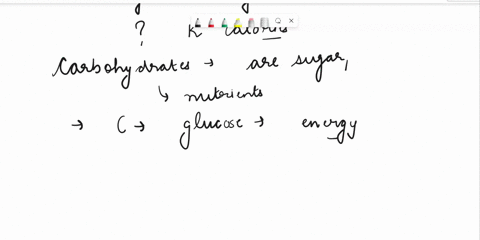 ? K calories
Carbohydrates → are sugar,
↳ nutrients
→ C → glucose → energy